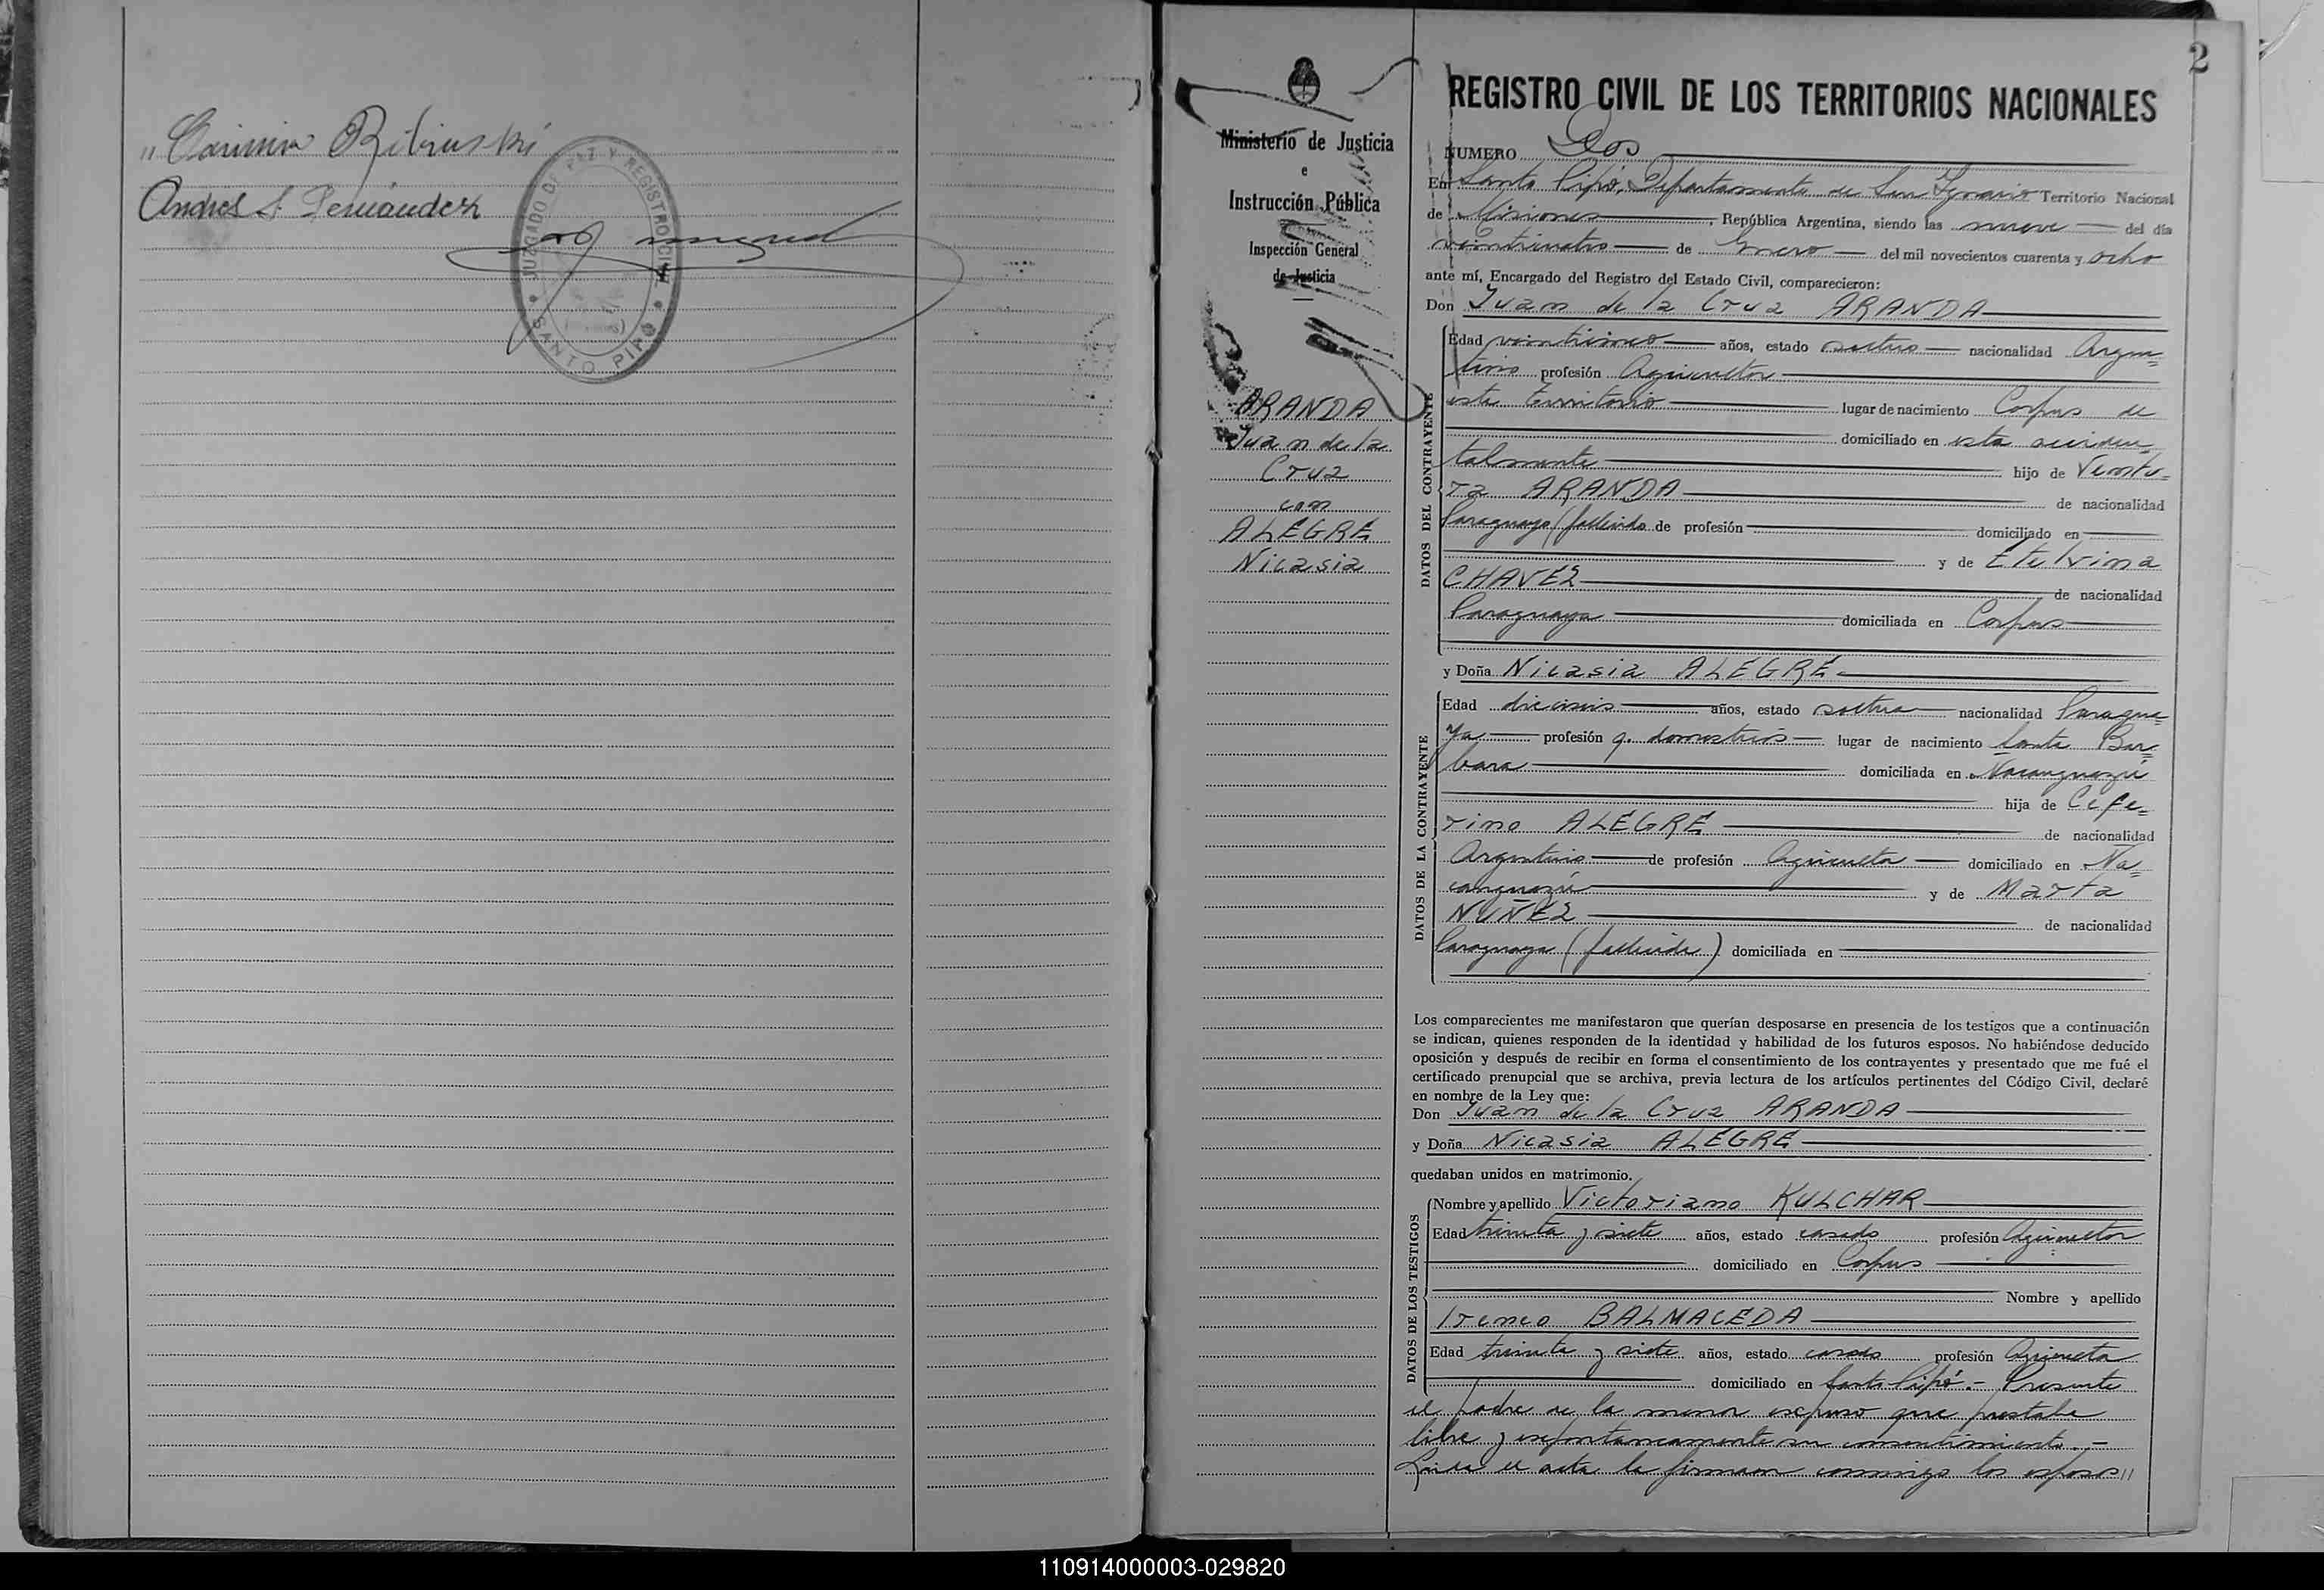 " Casimira
Andres S. Fernández
JUZGADO DE PAZ Y REGISTRO CIVIL
SANTO PIPÓ
2
Ministerio de Justicia
e
Instrucción Pública
Inspección General
de Justicia
ARANDA
Juan de la
Cruz
con
ALEGRE
Nicasia
REGISTRO CIVIL DE LOS TERRITORIOS NACIONALES
NUMERO Dos
En Santo Pipó, Departamento de San Ignacio Territorio Nacional
de Misiones, República Argentina, siendo las nueve del día
veinticuatro de Enero del mil novecientos cuarenta y ocho
ante mí, Encargado del Registro del Estado Civil, comparecieron:
Don Juan de la Cruz ARANDA
DATOS DEL CONTRAYENTE
Edad años, estado soltero nacionalidad Argen=
tino profesión Agricultor
este Territorio lugar de nacimiento Corpus de
domiciliado en esta acciden=
talmente hijo de Ventu=
ra ARANDA de nacionalidad
Paraguayo (fallecido de profesión domiciliado en
y de Etelvina
CHAVEZ de nacionalidad
Paraguaya domiciliada en Corpus
y Doña Nicasia ALEGRE
DATOS DE LA CONTRAYENTE
Edad dieciseis años, estado soltera nacionalidad Paragua=
ya profesión q. domesticos lugar de nacimiento Santa Bar=
bara domiciliada en Ñacanguazú
hija de Cefe=
rino ALEGRE de nacionalidad
Argentino de profesión Agricultor domiciliado en Ña=
canguazú y de Marta
NUÑEZ de nacionalidad
Paraguaya (fallecida) domiciliada en
Los comparecientes me manifestaron que querían desposarse en presencia de los testigos que a continuación
se indican, quienes responden de la identidad y habilidad de los futuros esposos. No habiéndose deducido
oposición y después de recibir en forma el consentimiento de los contrayentes y presentado que me fué el
certificado prenupcial que se archiva, previa lectura de los artículos pertinentes del Código Civil, declaré
en nombre de la Ley que:
Don Juan de la Cruz ARANDA
y Doña Nicasia ALEGRE
quedaban unidos en matrimonio.
DATOS DE LOS TESTIGOS
Nombre y apellido Victoriano KULCHAR
Edad treinta y siete años, estado casado profesión Agricultor
domiciliado en Corpus
Nombre y apellido
Ireneo BALMACEDA
Edad treinta y siete años, estado casado profesión Agricultor
domiciliado en Santo Pipó.- Presente
el padre de la menor expuso que prestaba
libre y espontaneamente su consentimiento.-
Leida el acta la firman conmigo los esposos "
110914000003-029820